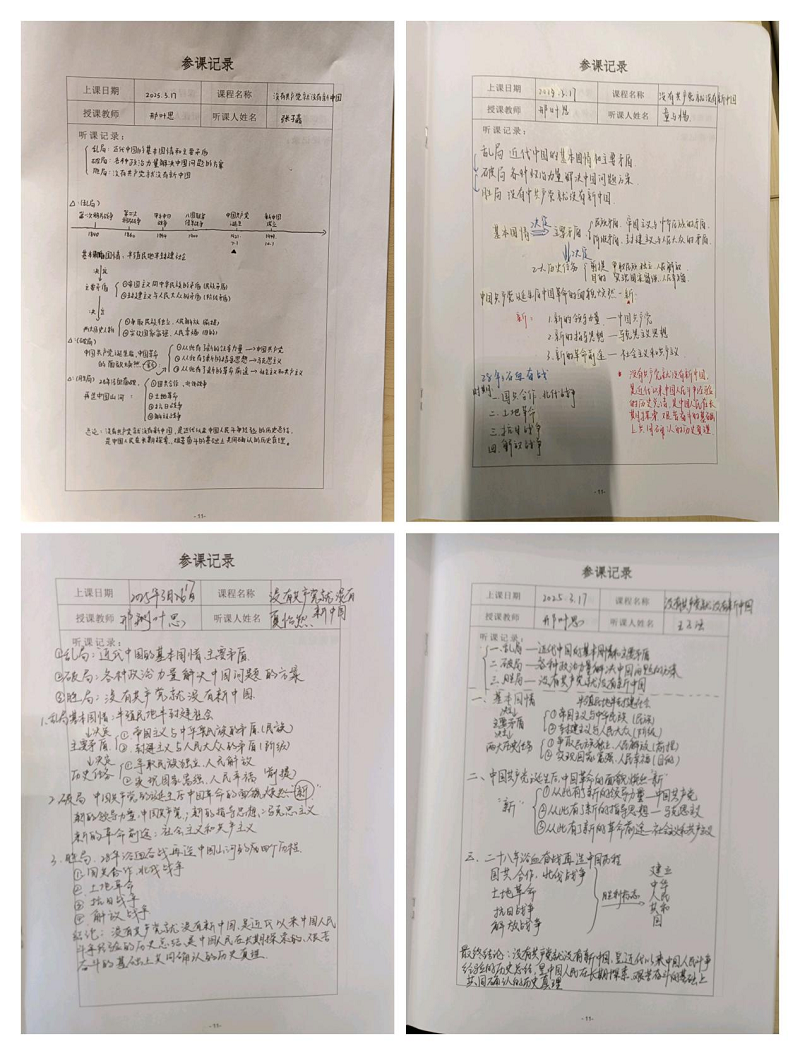 参课记录
上课日期 2025.3.17 课程名称 没有共产党就没有新中国
授课教师 邢叶思 听课人姓名
听课记录：
乱局：近代中国的基本国情和主要矛盾
破局：各种政治力量解决中国问题的方案
胜局：没有共产党就没有新中国
△《乱局》
第一次鸦片战争 第二次鸦片战争 甲午中日战争 八国联军侵华战争 中国共产党诞生 新中国成立
1840 1860 1894 1900 1921 7.1 1949 10.1
基本国情：半殖民地半封建社会
决定
主要矛盾 ①帝国主义同中华民族的矛盾（民族矛盾）
②封建主义与人民大众的矛盾（阶级矛盾）
决定
两大历史任务 ①争取民族独立、人民解放（前提）
②实现国家富强、人民幸福（目的）
△《破局》
中国共产党诞生后，中国革命的面貌焕然一新
①从此有了新的领导力量→中国共产党
②从此有了新的指导思想→马克思主义
③从此有了新的革命前途→社会主义和共产主义
△《胜局》28年浴血奋战，再造中国山河：
①国共合作，北伐战争
②土地革命
③抗日战争
④解放战争
结论：没有共产党就没有新中国，是近代以来中国人民斗争经验的历史总结，
是中国人民在长期探索、艰苦奋斗的基础上共同确认的历史真理。
-11-
参课记录
上课日期 2025.3.17 课程名称 没有共产党就没有新中国
授课教师 邢叶思 听课人姓名
听课记录：
乱局 近代中国的基本国情和主要矛盾
破局 各种政治力量解决中国问题方案
胜局 没有中共产党就没有新中国
基本国情 决定 主要矛盾 民族矛盾：帝国主义与中华民族的矛盾
阶级矛盾：封建主义与人民大众的矛盾
决定
2.大历史任务 前提 争取民族独立、人民解放
目的 实现国家富强、人民幸福
中国共产党诞生后中国革命的面貌焕然一新
新：1.新的领导力量—中国共产党
2.新的指导思想—马克思主义思想
3.新的革命前途—社会主义和共产主义
28年浴血奋战
时期：一.国共合作、北伐战争
二.土地革命
三.抗日战争
四.解放战争
没有共产党就没有新中国，
是近代以来中国人民斗争经验
的历史总结，是中国人民在长
期探索、艰苦奋斗的基础
上共同确认的历史真理
-11-
参课记录
上课日期 2025年3月17日 课程名称 没有共产党就没有新中国
授课教师 邢叶思 听课人姓名 夏怡然
听课记录：
①乱局：近代中国的基本国情 主要矛盾
②破局：各种政治力量解决中国问题的方案
③胜局：没有共产党就没有新中国
1.乱局基本国情：半殖民地半封建社会
↓决定
主要矛盾 ①帝国主义与中华民族的矛盾（民族）
②封建主义与人民大众的矛盾（阶级）
↓决定
历史任务 ①争取民族独立、人民解放
②实现国家富强、人民幸福（前提）
2.破局 中国共产党的诞生后中国革命的面貌焕然一新
新的领导力量：中国共产党；新的指导思想：马克思主义
新的革命前途：社会主义和共产主义
3.胜局：28年浴血奋战再造中国山河的四个历程
①国共合作，北伐战争
②土地革命
③抗日战争
④解放战争
结论：没有共产党就没有新中国，是近代以来中国人民
斗争经验的历史总结，是中国人民在长期探索的、艰苦
奋斗的基础上共同确认的历史真理
-11-
参课记录
上课日期 2025.3.17 课程名称 没有共产党就没有新中国
授课教师 邢叶思 听课人姓名
听课记录：
一.乱局—近代中国的基本国情和主要矛盾
二.破局—各种政治力量解决中国问题的方案
三.胜局—没有共产党就没有新中国
一、基本国情 半殖民地半封建社会
决定↓
主要矛盾 ①帝国主义与中华民族（民族）
②封建主义与人民大众（阶级）
决定↓
两大历史任务 ①争取民族独立、人民解放（前提）
②实现国家富强、人民幸福（目的）
二、中国共产党诞生后，中国革命的面貌焕然一新
“新” ①从此有了新的领导力量—中国共产党
②从此有了新的指导思想—马克思主义
③从此有了新的革命前途—社会主义和共产主义
三、二十八年浴血奋战再造中国历程
国共合作，北伐战争
土地革命
抗日战争
解放战争
胜利标志 建立中华人民共和国
最终结论：没有共产党就没有新中国，是近代以来中国人民斗争
经验的历史总结，是中国人民在长期探索、艰苦奋斗的基础上
共同确认的历史真理
-11-